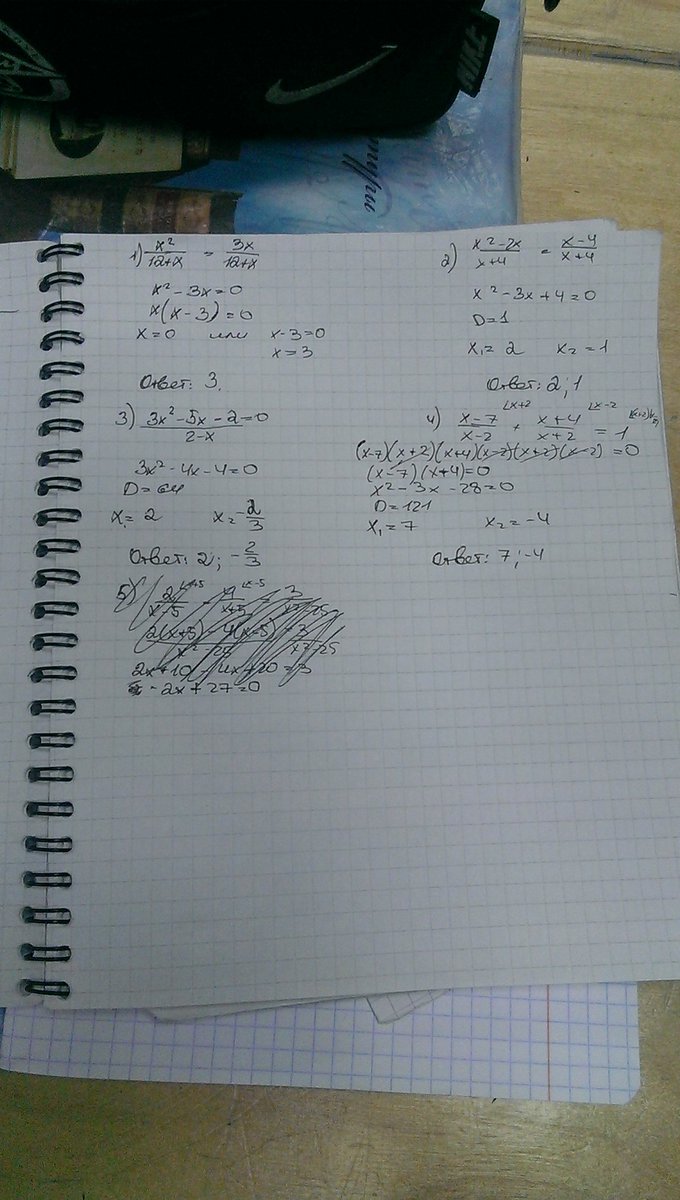 NIKE
1) x²/(12+x) = 3x/(12+x)
x² - 3x = 0
x(x - 3) = 0
x = 0 или x - 3 = 0
x = 3
Ответ: 3.
2) (x² - 2x)/(x+4) = (x-4)/(x+4)
x² - 3x + 4 = 0
D = 1
x₁ = 2 x₂ = 1
Ответ: 2; 1
3) (3x² - 5x - 2 = 0)/(2-x)
3x² - 4x - 4 = 0
D = 64
x₁ = 2 x₂ = -2/3
Ответ: 2; -2/3
4) (x-7)/(x-2) + (x+4)/(x+2) = 1
(x-7)(x+2)(x+4)(x-2)(x+2)(x-2) = 0
(x-7)(x+4) = 0
x² - 3x - 28 = 0
D = 121
x₁ = 7 x₂ = -4
Ответ: 7; -4
5)
2(x+5) - 4(x-5) = 3
2x + 10 - 4x + 20 = 3
-2x + 27 = 0